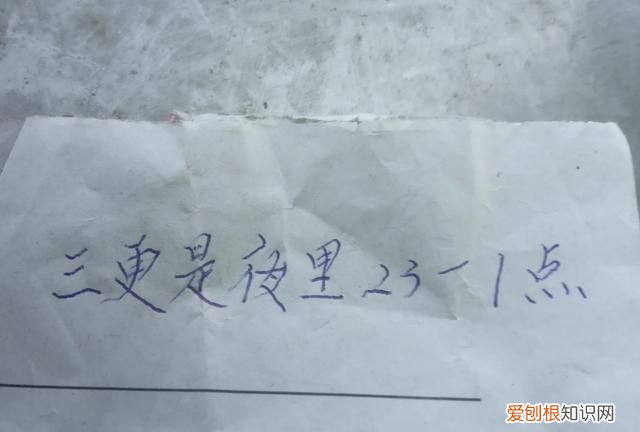 三更是夜里23-1点
爱刨根知识网